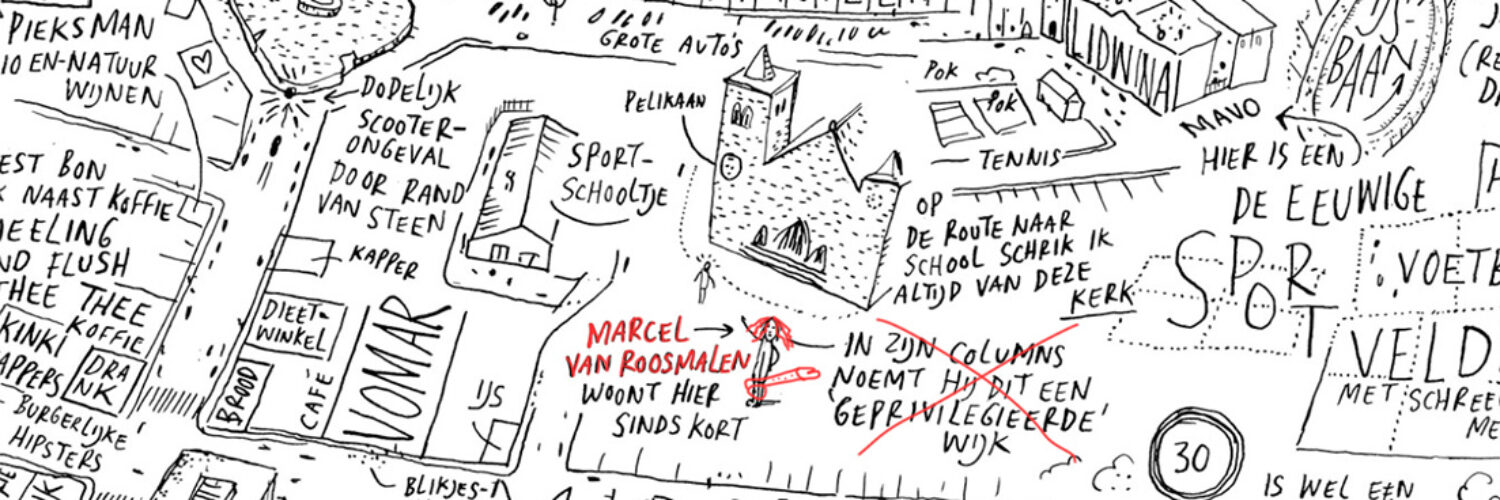 PIEKSMAN
IO EN-NATUUR
WIJNEN
EST BON
K NAAST KOFFIE
DEELING
ND FLUSH
THEE THEE
KOFFIE
KINKI
APPERS
DRA
NK
BURGERLIJKE
HIPSTERS
DODELIJK
SCOOTER-
ONGEVAL
DOOR RAND
VAN STEEN
KAPPER
DIEET-
WINKEL
BROOD
CAFÉ
VOMAR
IJS
BLIKJES-
GROTE AUTO'S
SPORT-
SCHOOLTJE
PELIKAAN
MARCEL
VAN ROOSMALEN
WOONT HIER
SINDS KORT
IN ZIJN COLUMNS
NOEMT HIJ DIT EEN
'GEPRIVILEGIEERDE'
WIJK
OP
DE ROUTE NAAR
SCHOOL SCHRIK IK
ALTIJD VAN DEZE
KERK
POK
POK
TENNIS
LIDWINA
MAVO
IJS
BAAN
HIER IS EEN
DE EEUWIGE
SPORT
VOETB
VELD
MET SCHREE
ME
30
IS WEL EEN